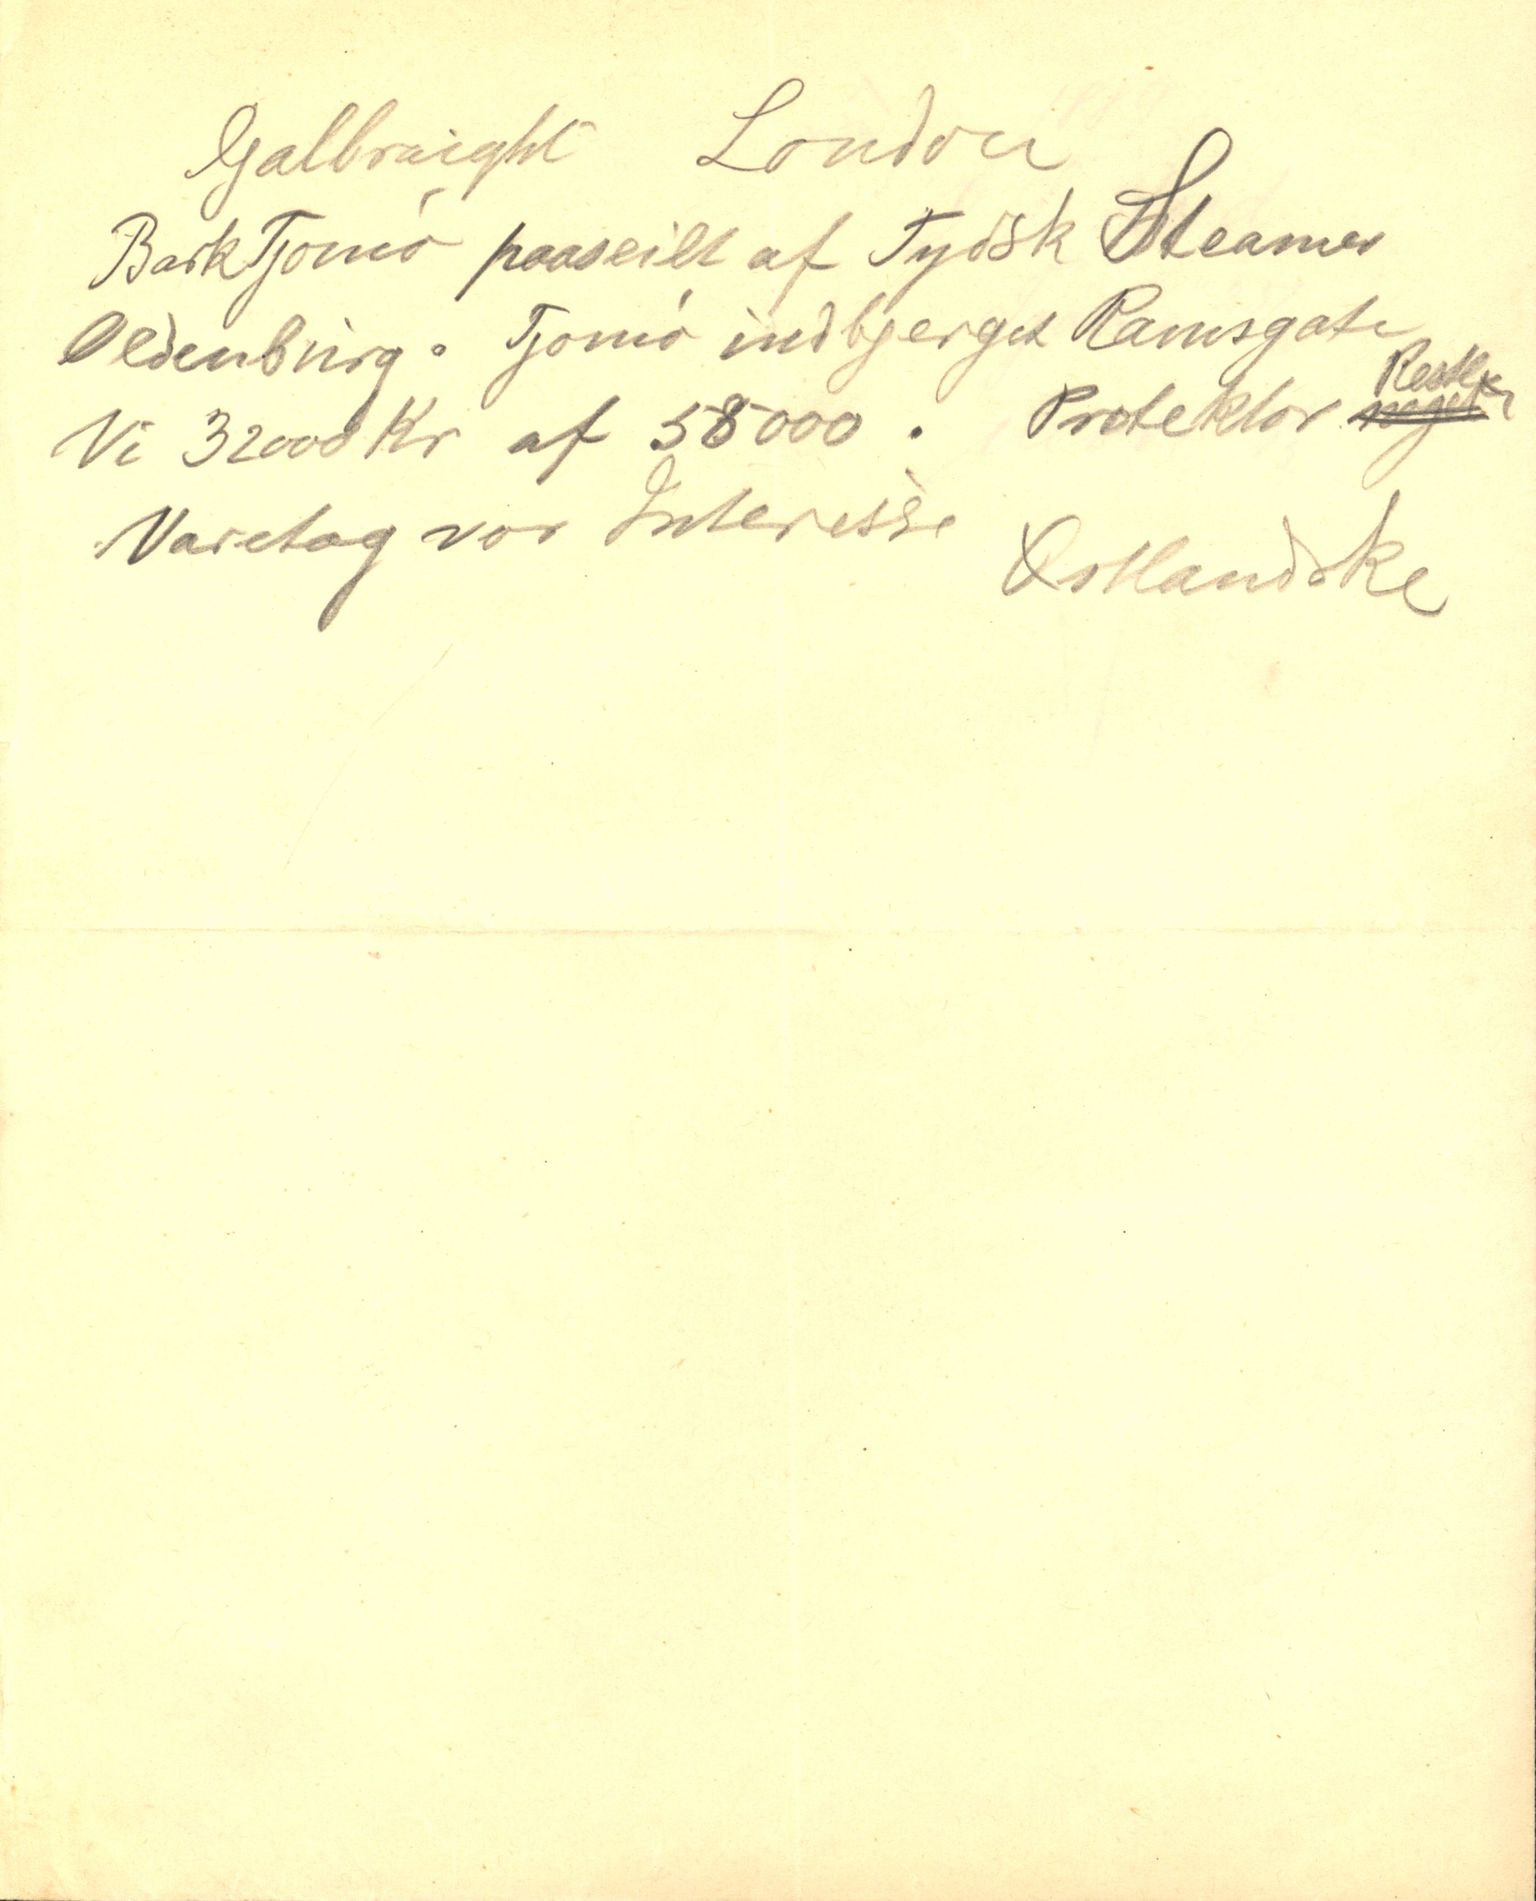 Galbraight London
Bark Tjømø paaseilt af Tydsk Steamer
Oldenburg. Tjømø indbjerget Ramsgate
Vi 32000 Kr af 58000. Protektor
Varetag vor Interesse Østlandske